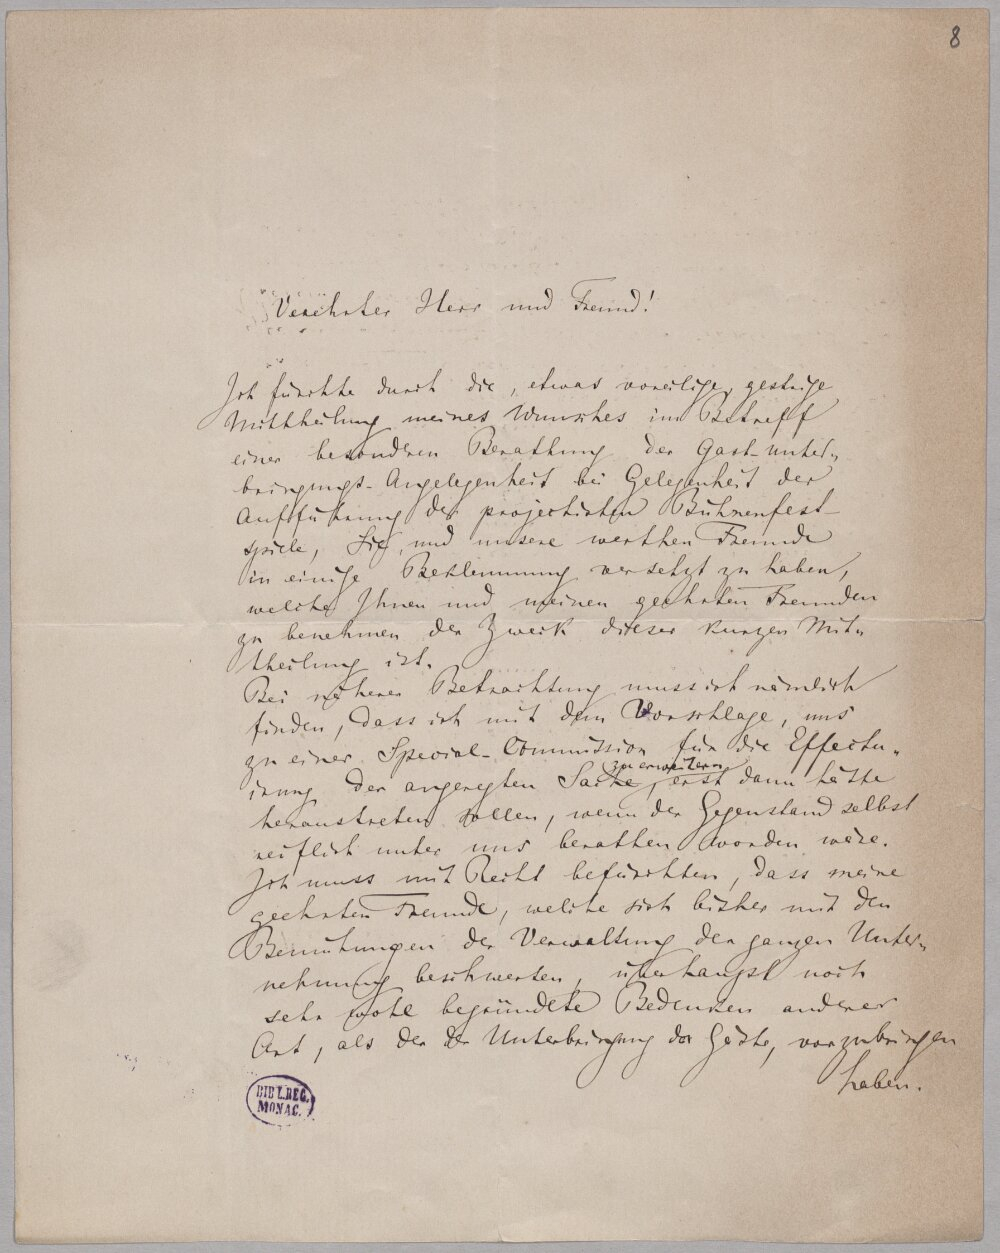 8
Verehrter Herr und Freund!
Ich fürchte durch die, etwas voreilige, gestrige
Mittheilung meines Wunsches im Betreff
einer besonderen Berathung der Gast-Unter-
bringungs-Angelegenheit bei Gelegenheit der
Aufführung der projectirten Bühnenfest-
spiele, Sie, und unsere werthen Freunde
in einige Beklemmung versetzt zu haben,
welche Ihnen und meinen geehrten Freunden
zu benehmen der Zweck dieser kurzen Mit-
theilung ist.
Bei näherer Betrachtung muss ich nämlich
finden, dass ich mit dem Vorschlage, uns
zu einer Special-Commission für die Effectu-
zu erweitern
irung der angeregten Sache, erst dann hätte
heraustreten sollen, wenn der Gegenstand selbst
reiflich unter uns berathen worden wäre.
Ich muss mit Recht befürchten, dass meine
geehrten Freunde, welche sich bisher mit den
Bemühungen der Verwaltung der ganzen Unter-
nehmung beschwerten, überhaupt noch
sehr wohl begründete Bedenken anderer
Art, als der der Unterbringung der Gäste, vorzubringen
haben.
BIBL. REG.
MONAC.